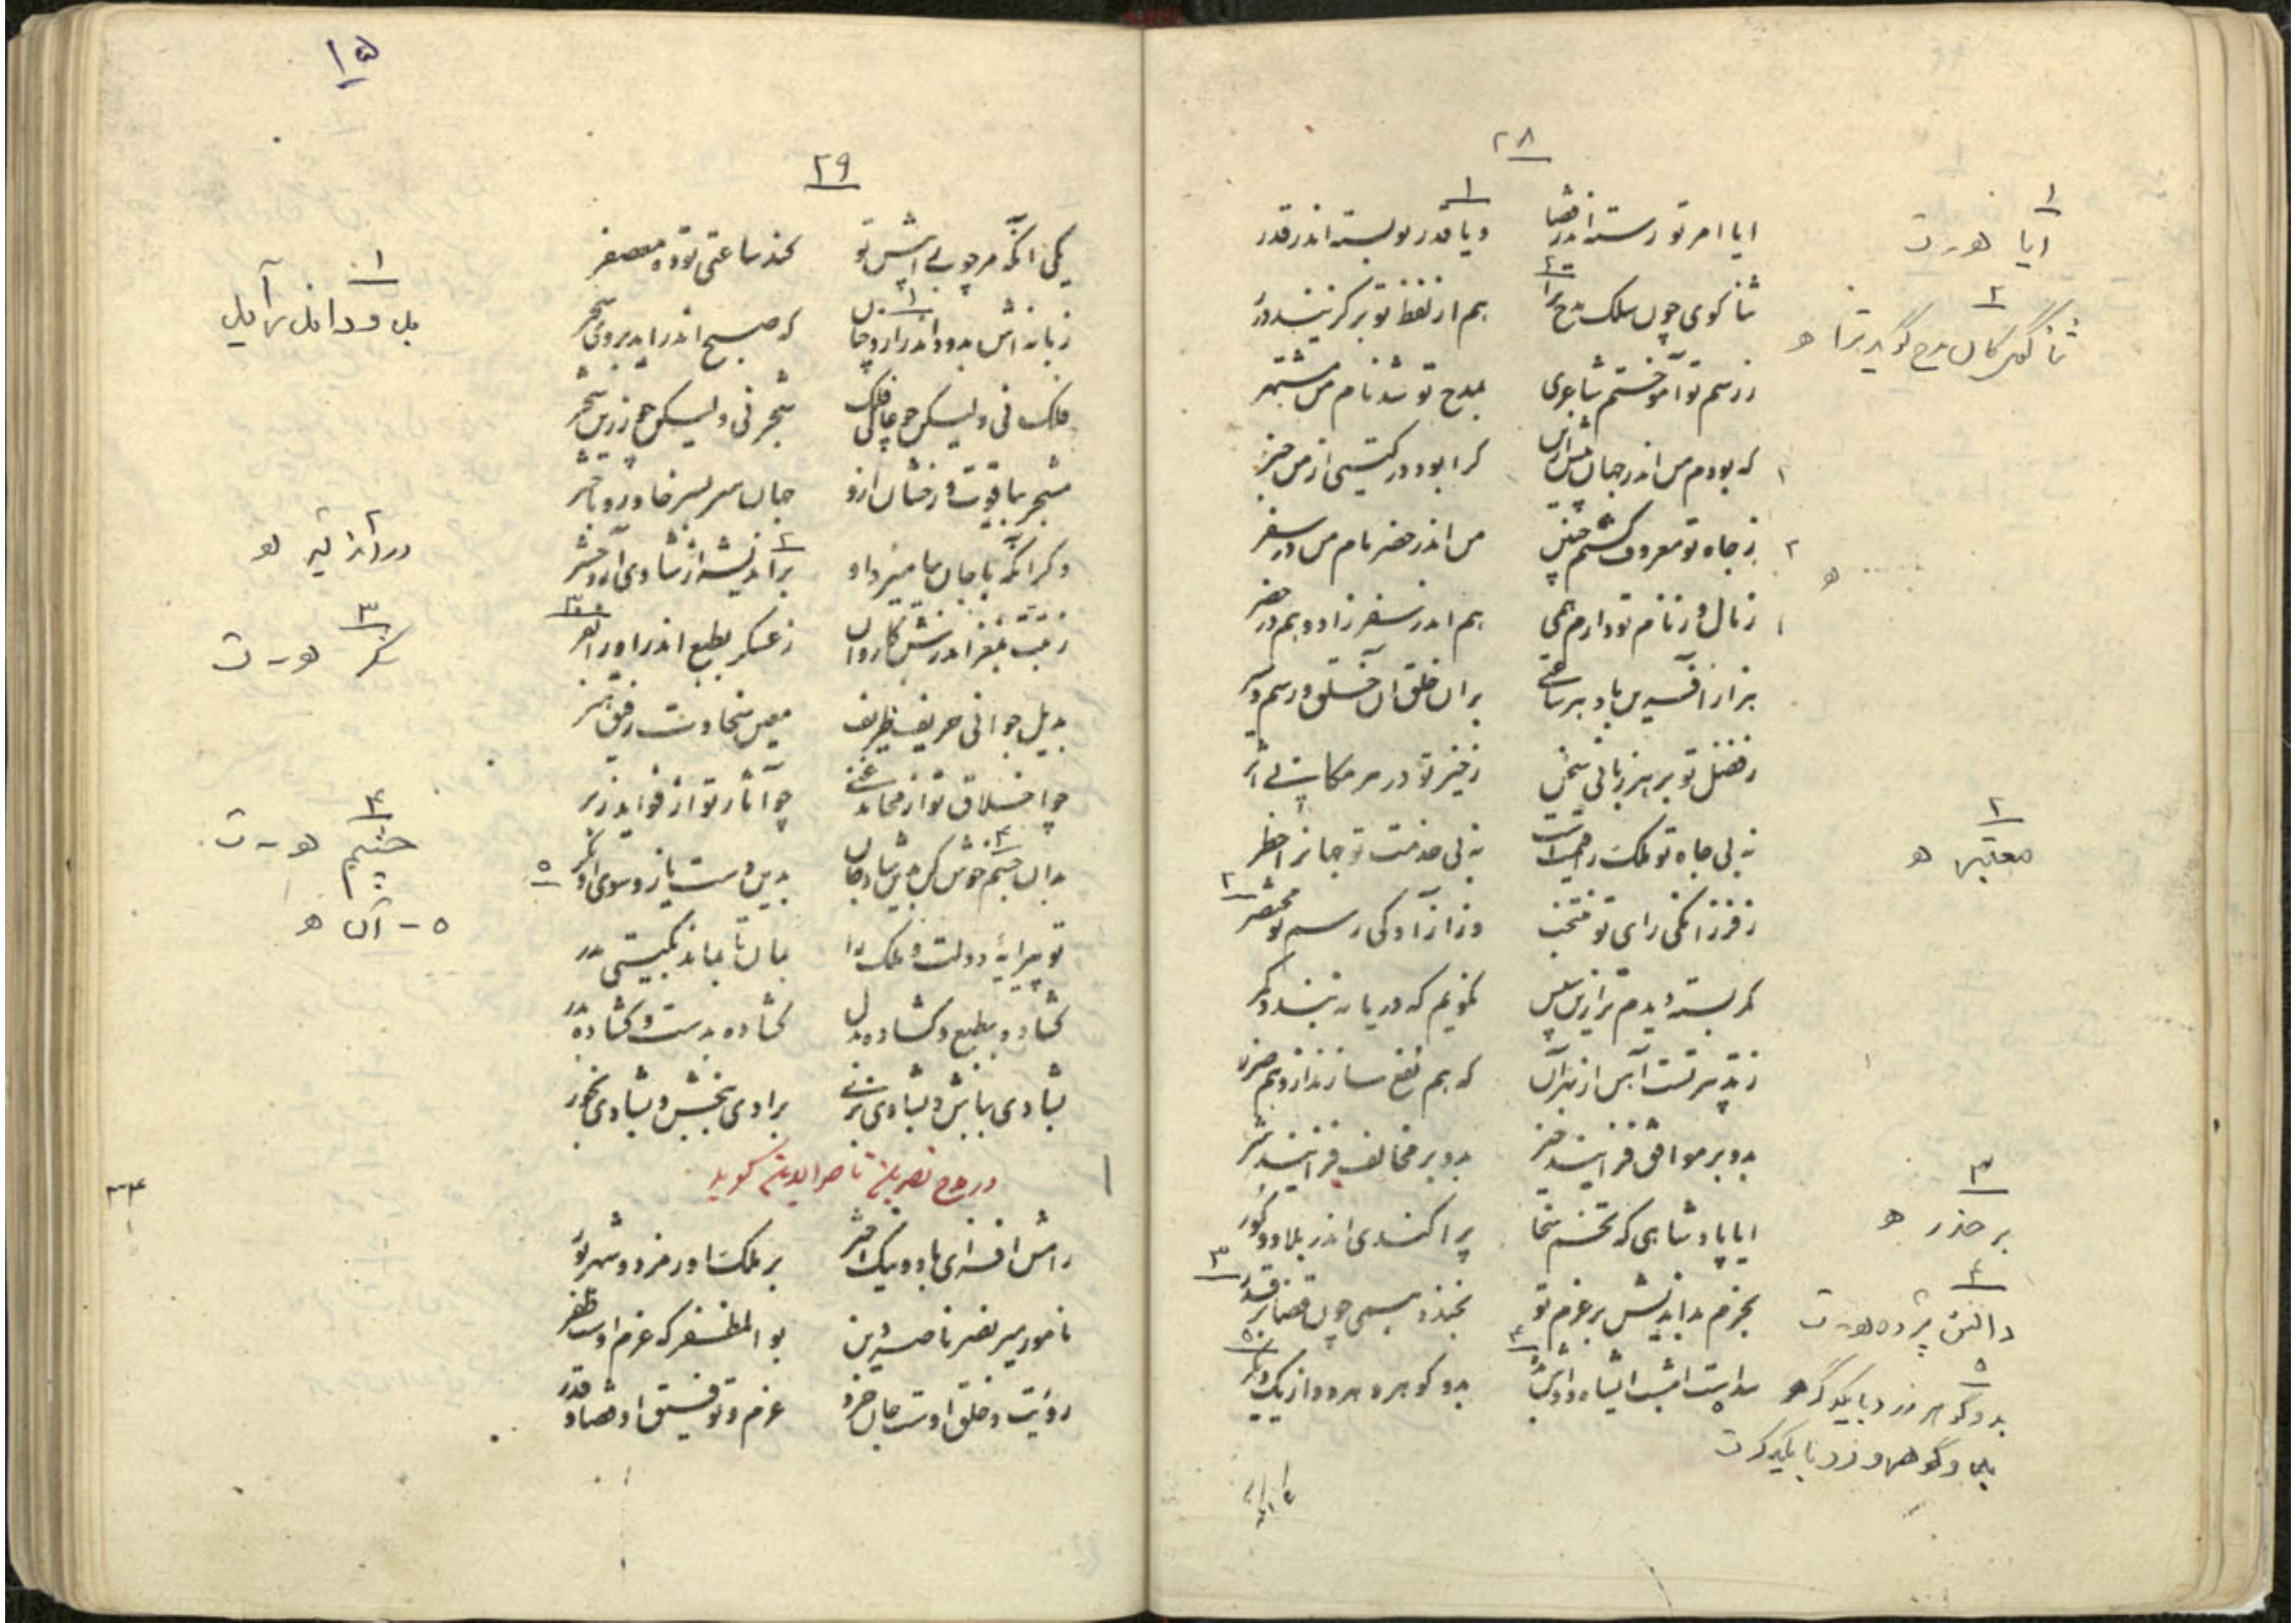 ۲۸
ایا امر تو رسته اندر قضا ویا قدر تو بسته اندر قدر
ثنا گوی چون سلک مدح ترا هم از لفظ تو برگزیند درر
ز رسم تو آموختم شاعری بمدح تو شد نام من مشتهر
که بودم من اندر جهان پیش ازین کرا بود در گیتی از من خبر
ز جاه تو معروف گشتم چنین من اندر حضر نام من در سفر
ز مال و ز نام تو دارم همی هم اندر سفر زاد و هم در حضر
هزار آفرین باد بر ساعتی بران خلق آن خلق و رسم و سیر
ز فضل تو بر هر زبانی سخن ز خیر تو در هر مکانی اثر
نه بی جاه تو ملک را قیمت نه بی خدمت تو جهانرا خطر
ز فرزانگی رای تو منتخب وز آزادگی رسم تو مختصر
کمر بسته دیدم ترا زین سپس نگویم که دریا نبندد کمر
ز تدبیر تست آهن از بهر آن که هم نفع سازند ازو هم ضرر
بدو بر موافق فزایند خیر بدو بر مخالف فزایند شر
ایا پادشاهی که تخم سخا پراکندی اندر بلاد و کور
بحزم بداندیش بر عزم تو بخندد همی چون قضا بر قدر
بدو گوهر و هر دو از یک دگر
۱
ایا هـ - ت
۲
ثنا گو کان مدح گوید ترا هـ
هـ
۲
معتبر هـ
۳
بر حذر هـ
۴
دانش پژوه هـ - ت
۵
بدو گوهر مزد با یکدگر هـ
بدو گوهر مزد با یکدگر ت
۱۵
۲۹
یکی آنکه مر چوب را پیش تو کند ساعتی توده معصفر
زبانه‌اش بدود اندر ارو چنان که صبح اندر آید بروی سحر
فلک نی ولیکن چو چاهی فلک شجر نی ولیکن چو زرین شجر
مشجر بیاقوت رخشان ازو جهان سر بسر خاور و باختر
دگر آنکه با جان بیامیزد او بر اندیشه از شادی آرد حشر
ز تبت بمغز اندرش کاروان ز عسکر بطبع اندر آورد نفر
بدیل جوانی حریف ظریف معین سخاوت رفیق هنر
چو اخلاق تو از محامد غنی چو آثار تو از فواید زبر
بدان چشم خوش کن بدین شاد جان بدین دست یاز و سوی او نگر
تو پیرایه دولت و ملک را بمان تا بماند بگیتی مدر
گشاده بطبع و گشاده بدل گشاده بدست و گشاده بدر
بشادی بباش و بشادی بزی برادی ببخش و بشادی بخور
در مدح نصر بن ناصرالدین گوید
رامش افزای باد و نیک اختر بر ملک اورمزد و شهریور
نامور میر نصر ناصر دین بو المظفر که عزم اوست ظفر
رؤیت و خلق اوست جان خرد عزم و توفیق او قضا و قدر
۱
۲
در اندیشه هـ
۳
شکر هـ - ت
۴
خشم هـ - ت
۵ - آن هـ
۳۴